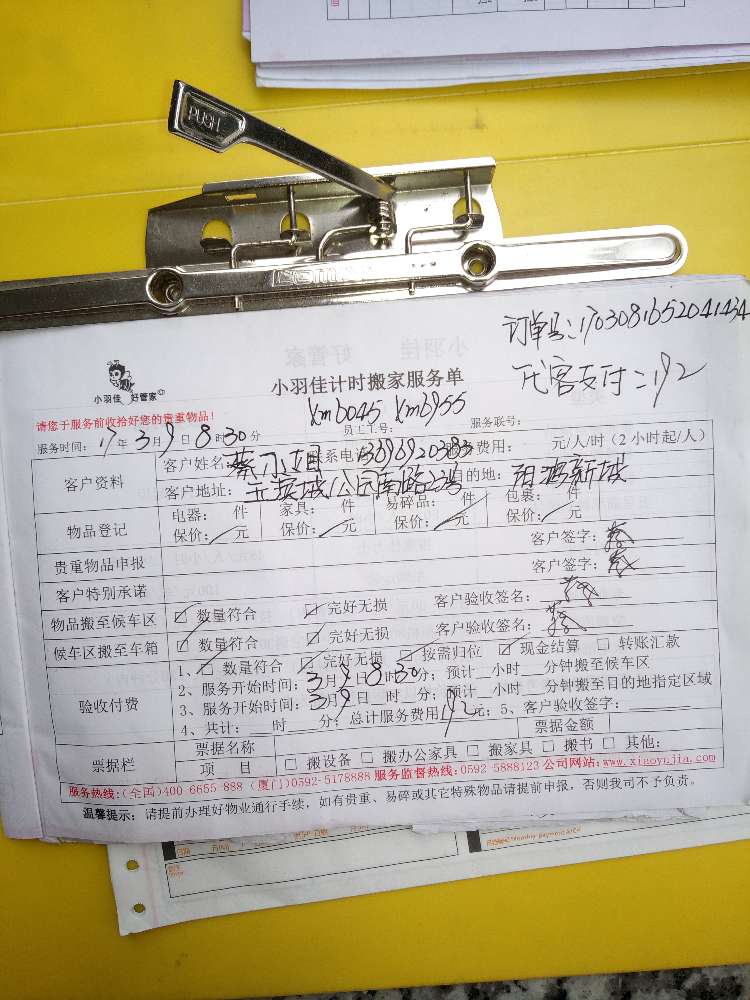 PUSH
订单号:170308165204143 4
代客支付:192
小羽佳 好管家
小羽佳计时搬家服务单
Xm6045 Xm6955
请您于服务前收拾好您的贵重物品!
服务时间:17年3月9日8时30分 员工工号: 服务联号:
客户资料 客户姓名: 联系电话 费用: 元/人/时(2小时起/人)
客户地址: 公园南路23号 目的地:
物品登记 电器: 件 家具: 件 易碎品: 件 包裹: 件
保价: 元 保价: 元 保价: 元 保价: 元
贵重物品申报 客户签字:蔡
客户特别承诺 客户签字:蔡
物品搬至候车区 ☑ 数量符合 ☑ 完好无损 客户验收签名:蔡
候车区搬至车箱 ☑ 数量符合 ☑ 完好无损 客户验收签名:蔡
验收付费 1、☑ 数量符合 ☑ 完好无损 ☑ 按需归位 ☑ 现金结算 □ 转账汇款
2、服务开始时间:3月9日8时30分;预计__小时__分钟搬至候车区
3、服务开始时间:3月9日 时 分;预计__小时__分钟搬至目的地指定区域
4、共计:__时__分;总计服务费用192元;5、客户验收签字:
票据栏 票据名称 票据金额
项 目 □ 搬设备 □ 搬办公家具 □ 搬家具 □ 搬书 □ 其他:
服务热线:(全国)400 6655 888 (厦门)0592-5178888 服务监督热线:0592 5888123 公司网站:www.xiaoyujia.com
温馨提示:请提前办理好物业通行手续,如有贵重、易碎或其它特殊物品请提前申报,否则我司不予负责。